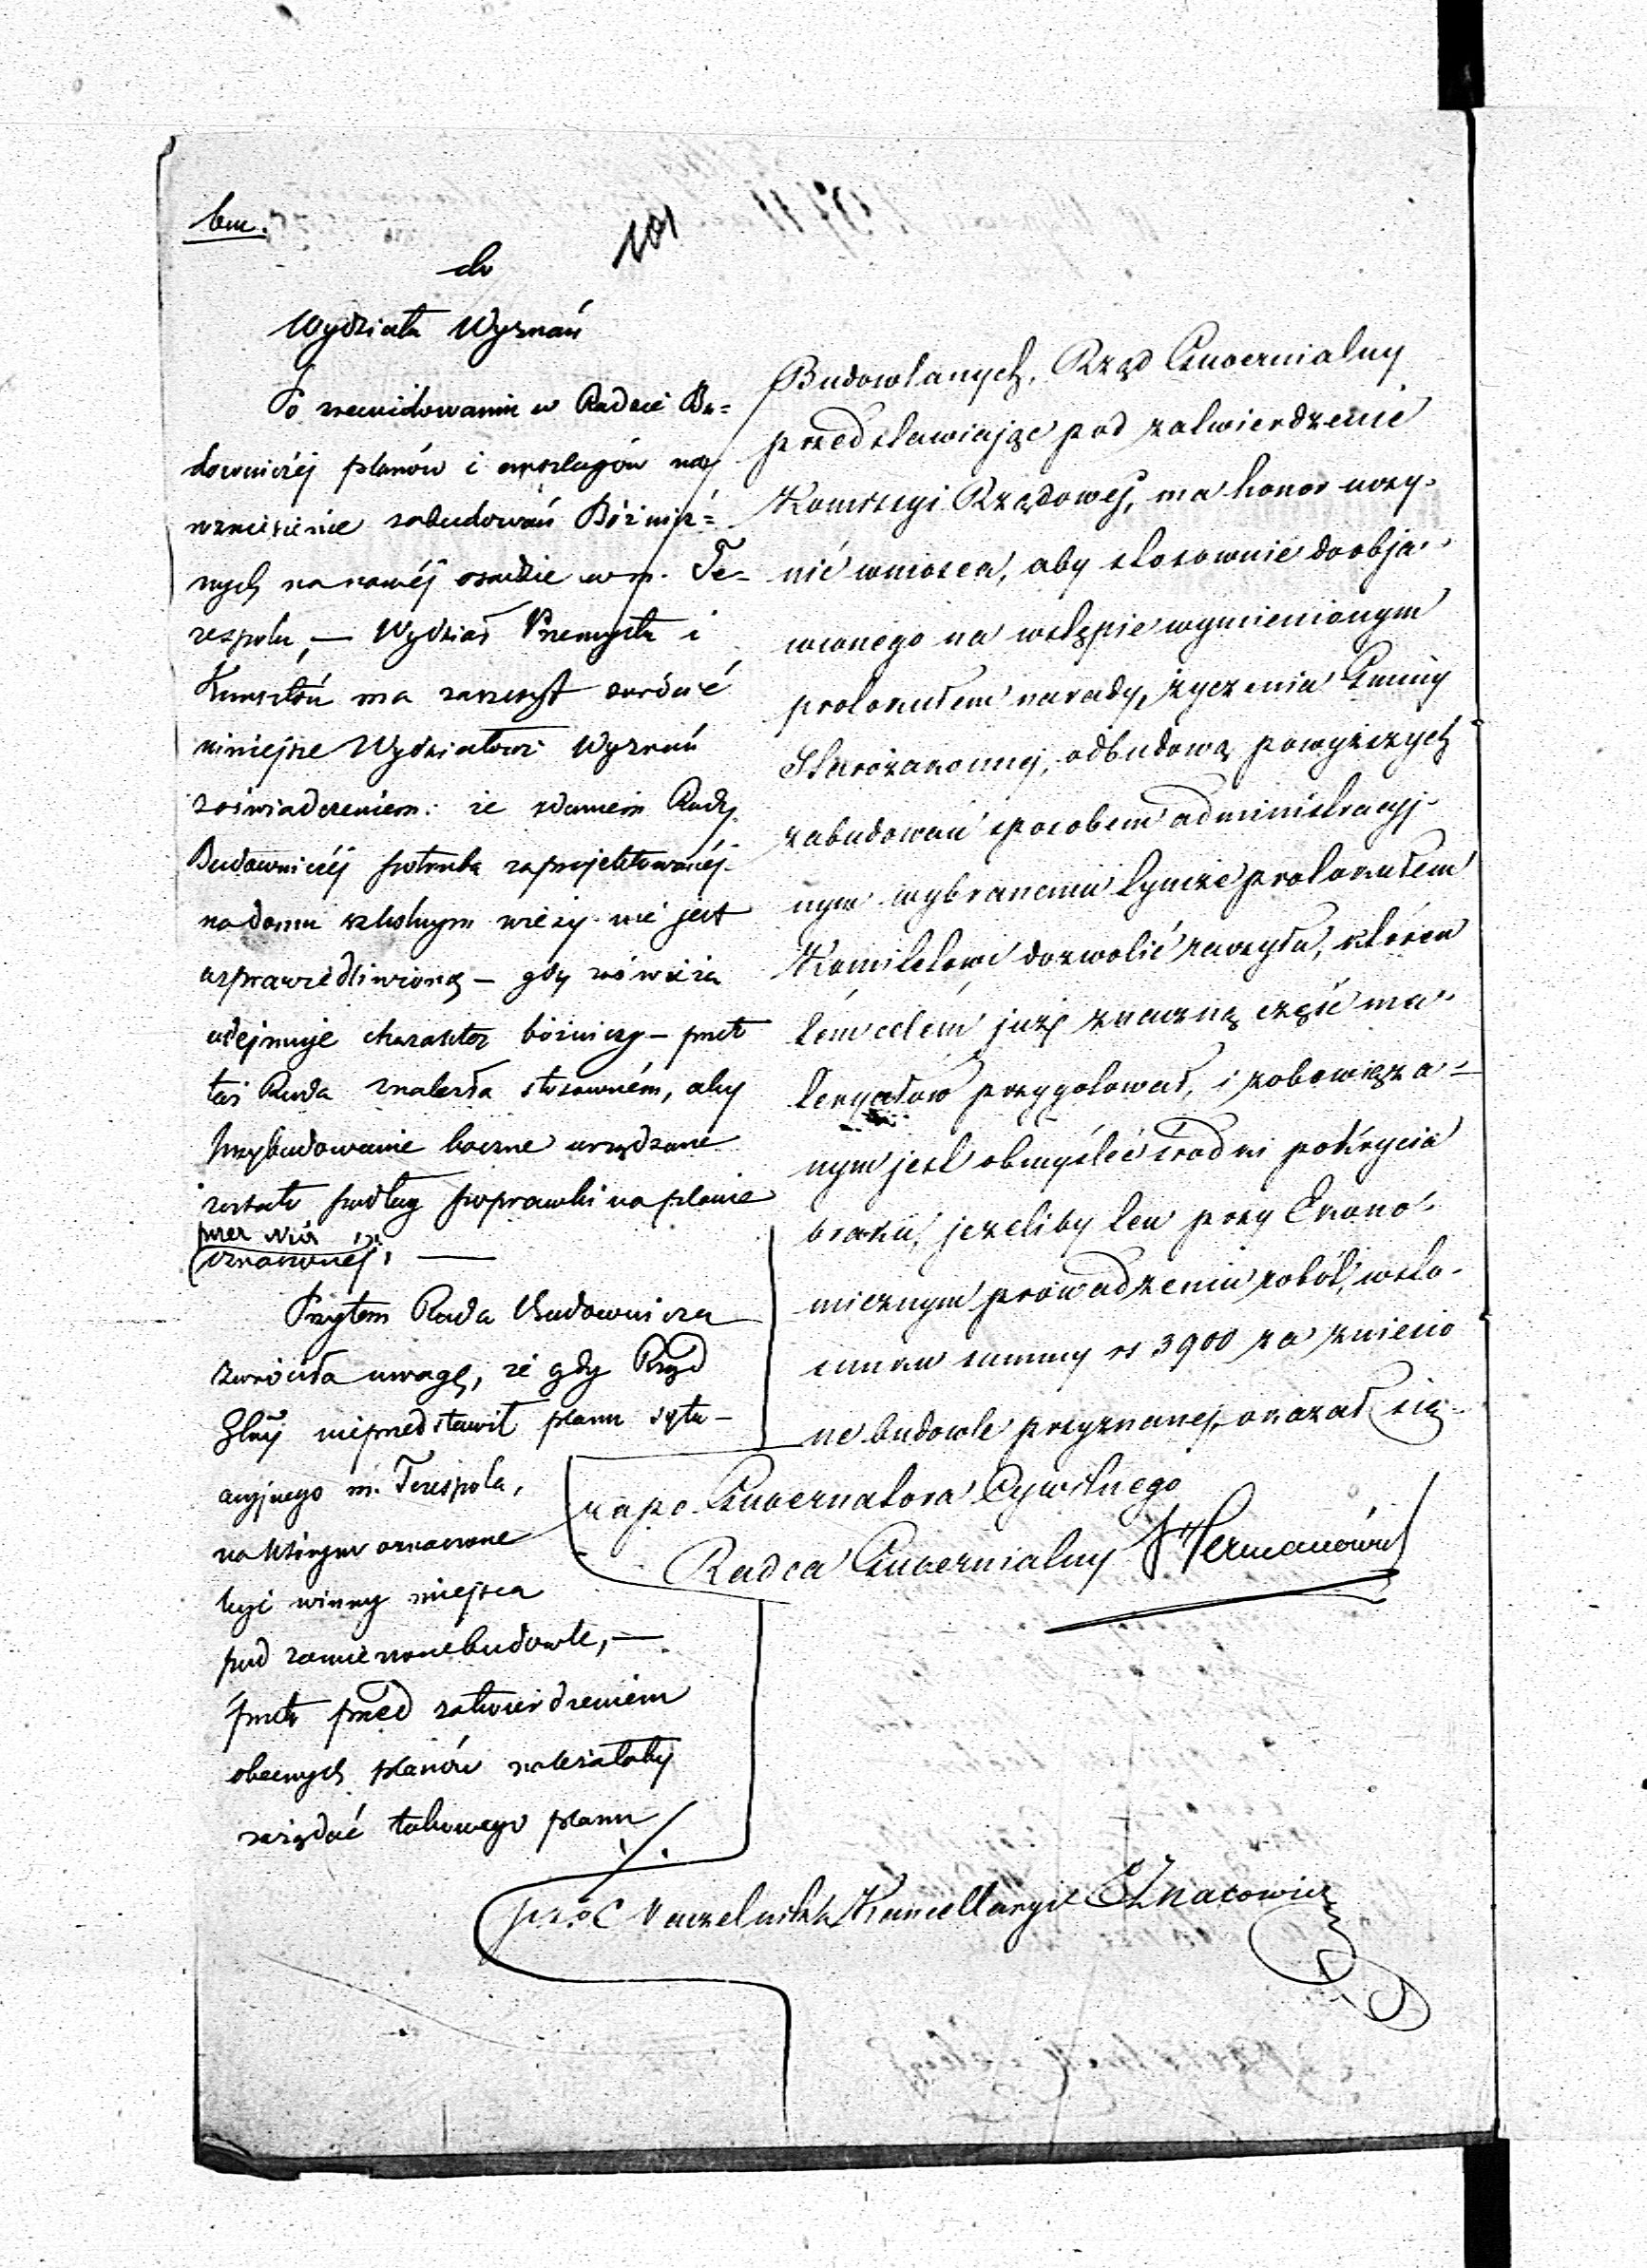 bm.
101
do
Wydziału Wyznań
Po zrewidowaniu w Radzie Bu=
downiczéj planów i anszlagów na
wzniesienie zabudowań Bóżnicz=
nych na nowéj osadzie w m. Te=
respolu, — Wydział Przemysłu i
Kunsztów ma zaszczyt zwrócić
niniejsze Wydziałowi Wyznań
zoświadczeniem: że zdaniem Rady
Budowniczéj potrzeba zaprojektowanéj
na domu szkolnym wieży nie jest
usprawiedliwioną — gdy również
ujmuje charakter bóżniczy — przeto
taż Rada znalazła stosowném, aby
przybudowanie boczne urządzone
zostało podług poprawki na planie
przez nią
oznaczonéj. —
Przytem Rada Budownicza
zwróciła uwagę, że gdy Rząd
Glny nieprzedstawił planu sytu-
acyjnego m. Terespola,
na którym oznaczone
być winny miejsca
pod zamierzone budowle, —
przeto przed zatwierdzeniem
obecnych planów należałoby
zażądać takowego planu
./.
Budowlanych, Rząd Gubernialny
przedstawiając pod zatwierdzenie
Kommissyi Rządowej, ma honor uczy-
nić wniosek, aby stosownie do obja-
wionego na wstępie wymienionym
protokułem narady, życzenia Gminy
Starozakonnej, odbudową powyższych
zabudowań sposobem administracyj-
nym wybranemu tymże protokułem
Komitetowi dozwolić raczyła, który
tém celém już znaczną część ma-
teryałów przygotował, i zobowiąza-
nym jest obmyśleć środki pokrycia
braku, jeżeliby ten przy Ekono-
micznym prowadzeniu robót, w sto-
sunku summy rs 3900 za zniesio
ne budowle przyznanej, okazał się.
za po. Gubernatora Cywilnego
Radca Gubernialny Hermanowicz
Naczelnika Kancellaryi Ihnatowicz